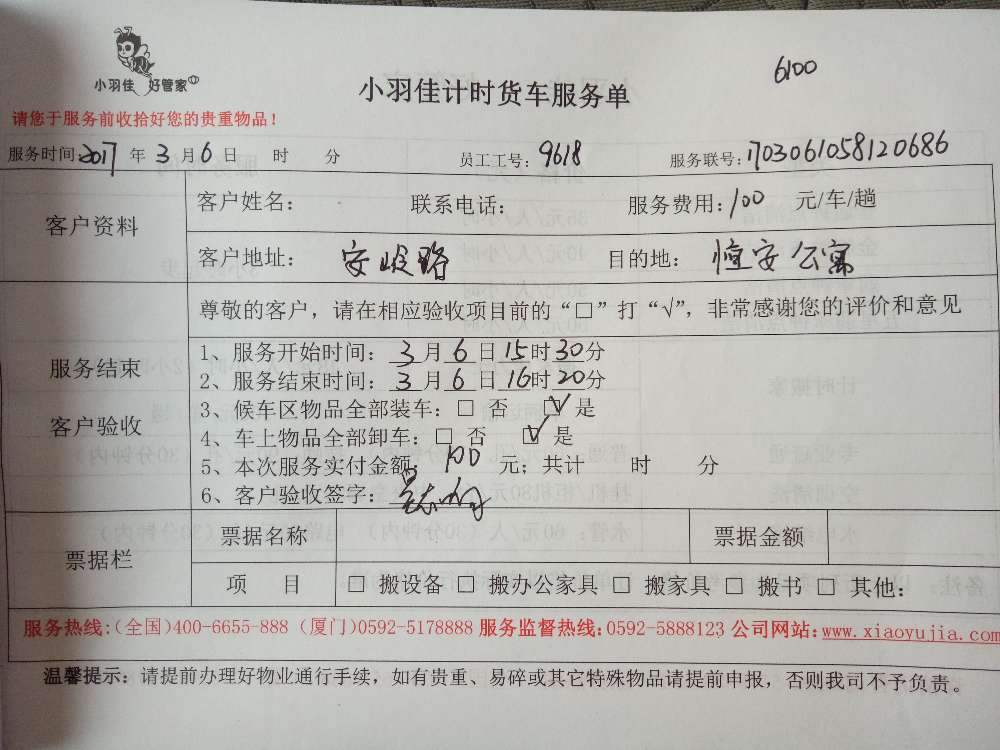 小羽佳 好管家
6100
小羽佳计时货车服务单
请您于服务前收拾好您的贵重物品！
服务时间：2017 年 3 月 6 日 时 分 员工工号：9618 服务联号：1703061058120686
客户资料
客户姓名： 联系电话： 服务费用：100 元/车/趟
客户地址： 安岭路 目的地： 恒安公寓
服务结束
客户验收
尊敬的客户，请在相应验收项目前的“□”打“√”，非常感谢您的评价和意见
1、服务开始时间：3月6日15时30分
2、服务结束时间：3月6日16时20分
3、候车区物品全部装车：□ 否 ☑ 是
4、车上物品全部卸车：□ 否 ☑ 是
5、本次服务实付金额：100 元；共计 时 分
6、客户验收签字：
票据栏
票据名称 票据金额
项 目 □ 搬设备 □ 搬办公家具 □ 搬家具 □ 搬书 □ 其他：
服务热线：（全国）400-6655-888（厦门）0592-5178888 服务监督热线：0592-5888123 公司网站：www.xiaoyujia.com
温馨提示：请提前办理好物业通行手续，如有贵重、易碎或其它特殊物品请提前申报，否则我司不予负责。